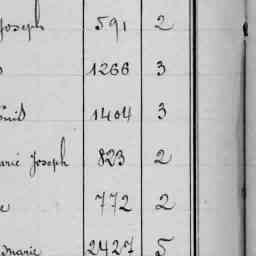 Joseph 591 2
1266 3
1404 3
Marie Joseph 823 2
e 772 2
marie 2427 5